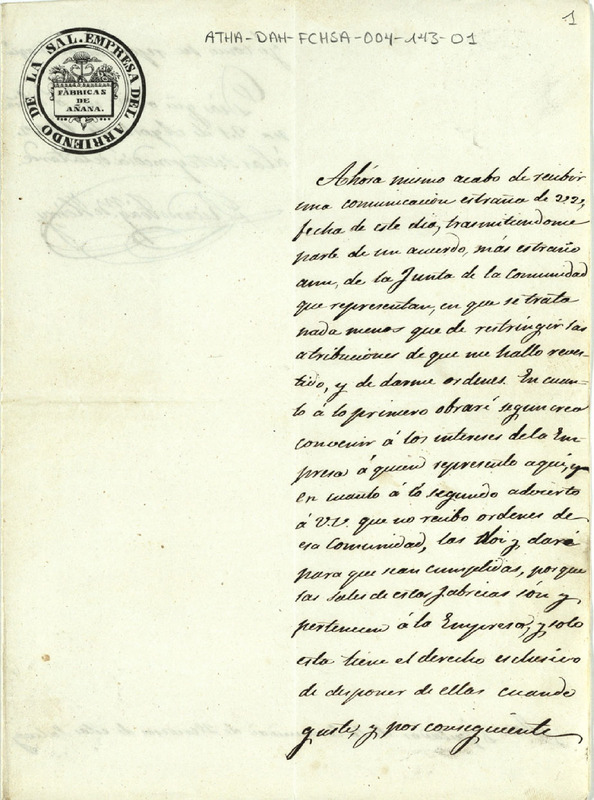 1
ATHA-DAH-FCHSA-004-143-01
EMPRESA DEL ARRIENDO DE LA SAL.
FÁBRICAS
DE
AÑANA.
Ahora mismo acabo de recibir
una comunicacion estraña de VV,
fecha de este dia, trasmitiendome
parte de un acuerdo, más estraño
aun, de la Junta de la Comunidad
que representan, en que se trata
nada menos que de restringir las
atribuciones de que me hallo reves-
tido, y de darme ordenes. En cuan-
to á lo primero obraré segun crea
convenir á los intereses de la Em-
presa á quien represento aquí, y
en cuanto á lo segundo advierto
á V.V. que no recibo ordenes de
esa Comunidad, las doi y daré
para que sean cumplidas, porque
las sales de estas fabricas són y
pertenecen á la Empresa, y solo
esta tiene el derecho esclusivo
de disponer de ellas cuando
guste, y por consiguiente